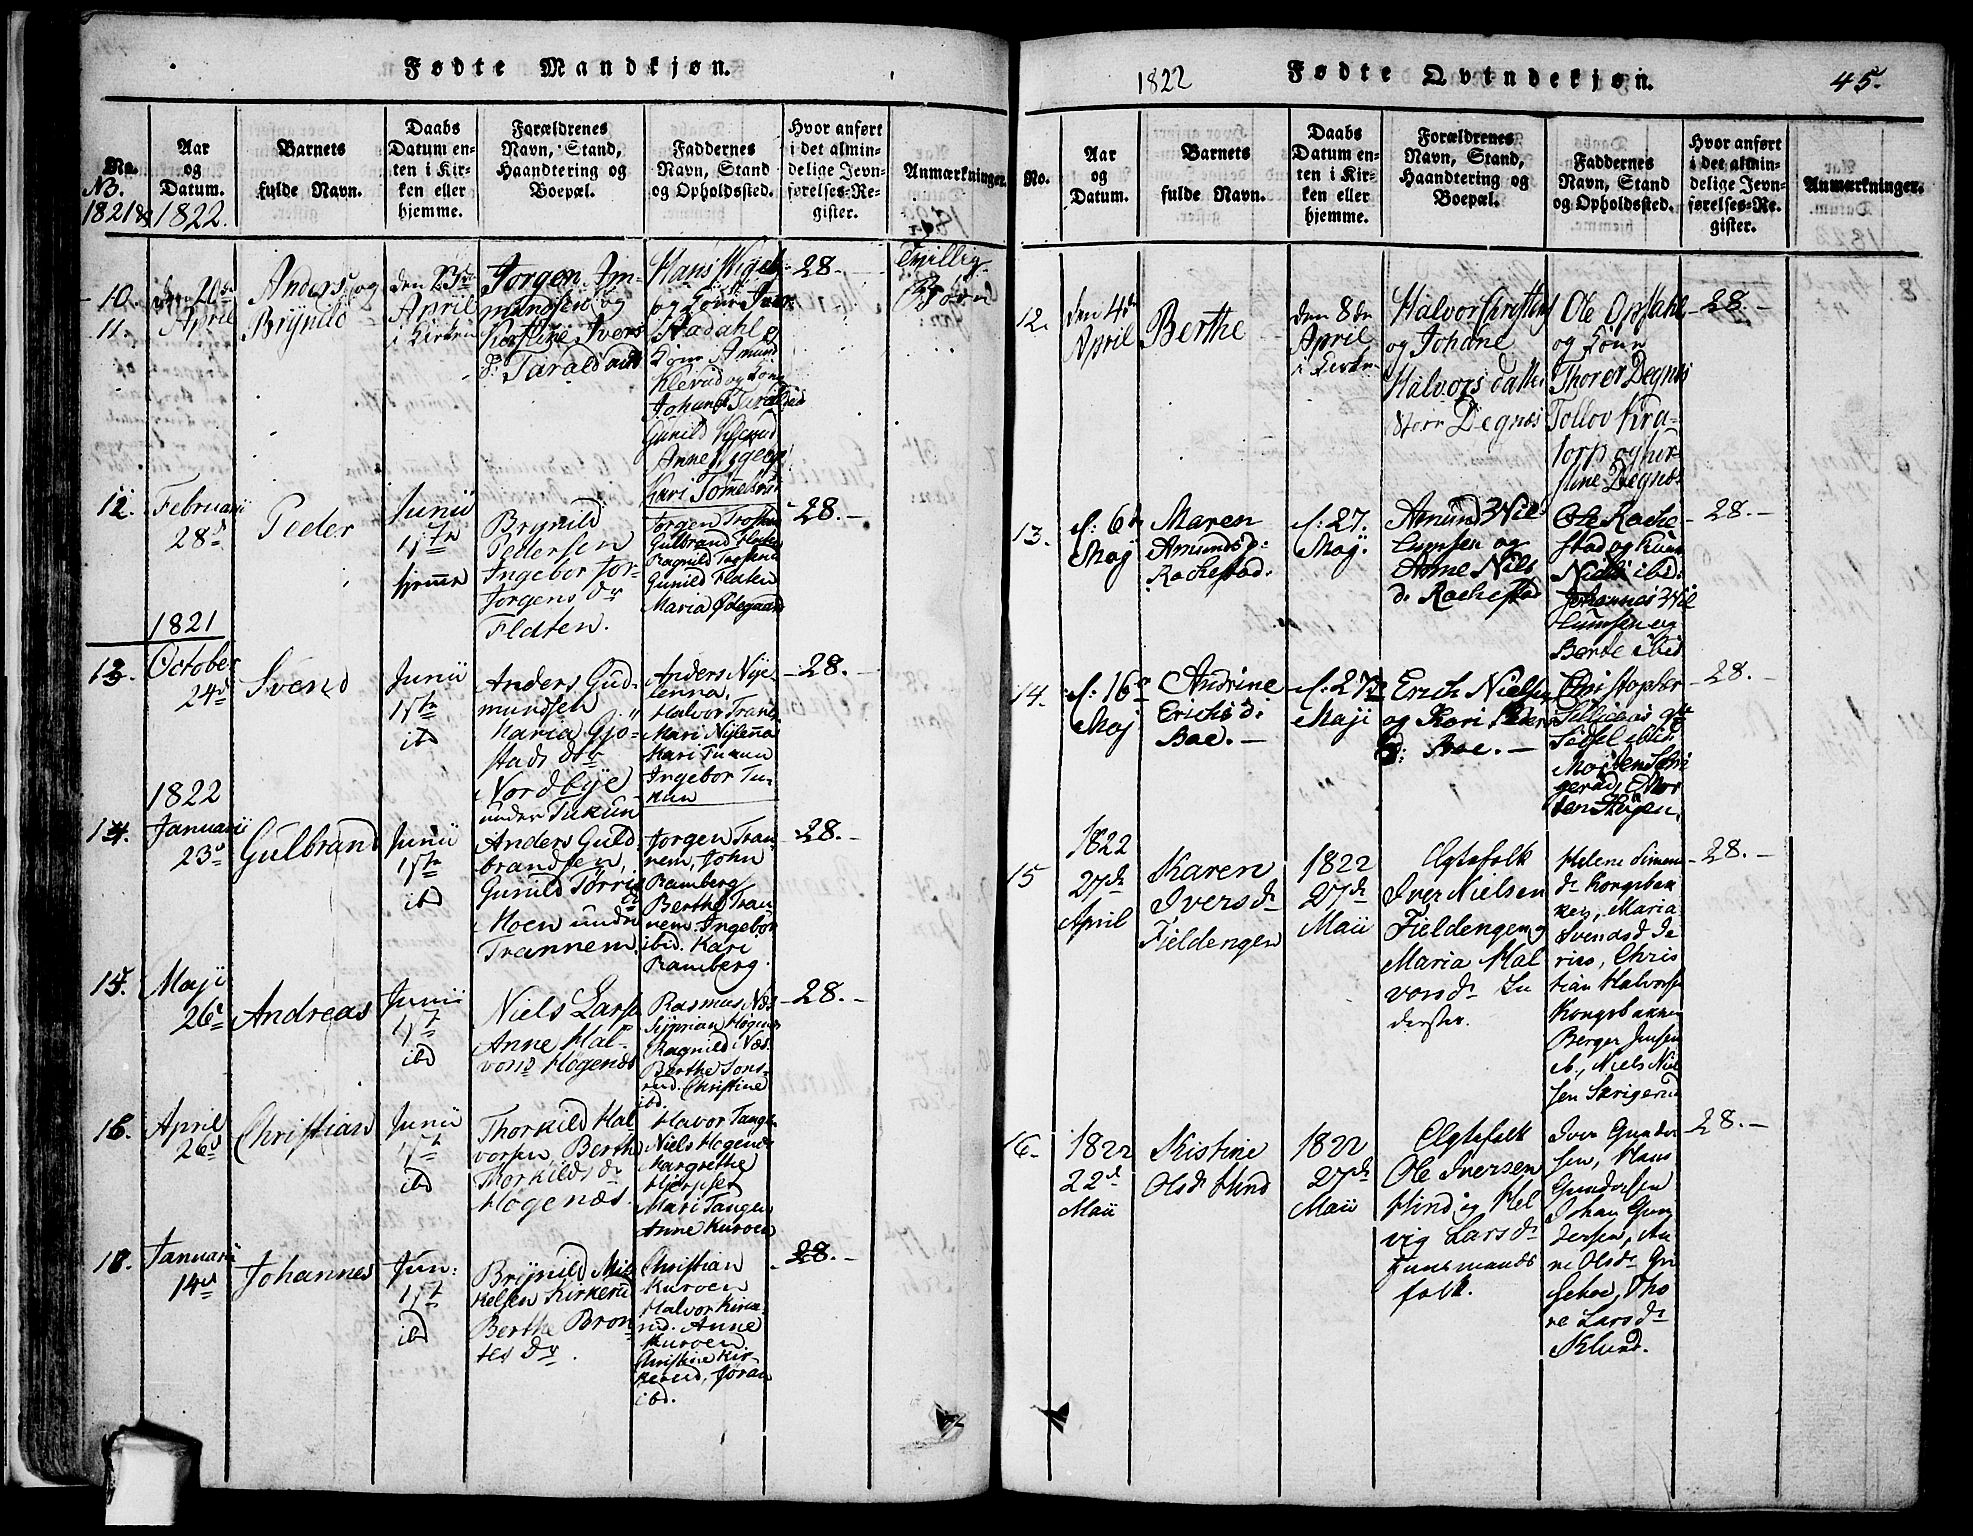 Fødte Mandkjøn.
No.
Aar
og
Datum.
Barnets
fulde Navn.
Daabs
Datum en-
ten i Kir-
ken eller
hjemme.
Forældrenes
Navn, Stand,
Haandtering og
Boepæl.
Faddernes
Navn, Stand
og Opholdssted.
Hvor anført
i det almin-
delige Jevn-
førelses-Re-
gister.
Anmærkninger.
NB.
1821 & 1822.
10.
11.
den 20de
April
Anders og
Brynild
den 25de
April
i Kirken
Jorgen Am-
mundsen og
Kirstine Ivers
d: Taraldrud
Hans Wigeb:
og Kone Iver
Stadahl og
Kone Amund
Klevud og Kone
Johannes Taraldrud
Gunild Klevud
Anne Wigeby
Kari Tomelsrud
28.
Tvilling-
Børn
12.
Februarii
28d
Peder
Junii
17de
hjemme
Brynild
Pedersen
Ingebor Jor-
Jorgens dr
Flaten.
Jorgen
Gulbrand Flaten
Ragnild
Gunild Flaten
Maria Ødegaard
28.
1821
13.
October
24d
Svend
Junii
17de
ibd
Anders Gud-
mundsen
Maria Gjø-
stads dr
Nordbye
under Tukun
Anders Nye-
lenna,
Halvor Trane
Mari Nylenna
Kari Tukun
Ingebor Tu-
kun
28.
1822
14.
Januarii
23d
Gulbrand
Junii
17de
ibd
Anders Guld-
brandsen,
Gunild Torris
d
Moen under
Trannem.
Jorgen Tran-
nem, John
Ramberg
Berthe Tran-
nem. Ingebor
ibid. Kari
Ramberg.
28.
15.
Maji
26d
Andreas
Junii
17de
ibd
Niels Larss.
Anne Hal-
vorsd Høgenæs
Rasmus Næs
Syprian Høgenæs
Ragnild Næs.
Berthe Tons-
rud. Christine
ibd.
28.
16.
April
26d
Christian
Junii
17de
ibd
Thorkild Hal
vorsen, Berthe
Thorkilds dr
Høgenæs.
Havor Tangen
Niels Høgenæs
Margrethe
Hjerpset
Mari Tangen
Anne Kuroen
28.
18.
Januarii
14d
Johannes
Jun:
17de
ibd
Brynild Mik-
kelsen Kirkerud
Berthe Bron-
tes dr.
Christian
Kuroen
Halvor Kirke-
rud. Anne
Kuroen
Christine Kir-
kerud, Joran
ibd.
28.
1822
Fødte Qvindekjøn.
45.
No.
Aar
og
Datum.
Barnets
fulde Navn.
Daabs
Datum en-
ten i Kir-
ken eller
hjemme.
Forældrenes
Navn, Stand,
Haandtering og
Boepæl.
Faddernes
Navn, Stand
og Opholdssted.
Hvor anført
i det almin-
delige Jevn-
førelses-Re-
gister.
Anmærkninger.
12.
den 4de
April
Berthe
den 8de
April
i Kirken
Halvor Christens
og Johane
Halvors datter
Store Degnæs
Ole Opstahl
og Kone
Thorer Degnæs
Tollov Kra-
torp og Kir-
stine Degnæs
28.
13.
d: 6te
Maj
Maren
Amundsd:
Rackestad.
d: 27.
Maj.
Amund Wil-
lumsen og
Anne Nils
d: Rackestad
Ole Racke-
stad og Kone
Niels ibid.
Johannes Wil
lumsen og
Berte ibid
28.
14.
d: 16de
Maj
Andrine
Erichsd:
Boe.
d: 27de
Maji
Erich Nielsen
og Kari Peders
d: Boe.
Christopher
Sidsel ibid.
Morten Skri-
gerud, Mor-
ten Skogen.
28.
15
1822
27de
April
Karen
Iversd
Fieldengen
1822
27de
Maii
Ægtefolk
Iver Nielsen
Fieldengen og
Maria Hal
vorsd In
derster.
Helene Simens
d: Kongsbak-
ken, Maria
Svendsd
Chris
tian Halvorsen
Kongsbakken
Berger Jensen
ib, Niels Niel
sen Skrigerud
28.
16.
1822
22d
Maii
Kistine
Olsd Hind
1822
27de
Maii
Ægtefolk
Ole Iversen
Hind og Hel
vig Larsd
Huusmands
folk.
Iver Gunder
sen, Hans
Gundersen
Johan Gun
dersen, An
ne Olsd
Tho
re Larsd
Klund.
28.